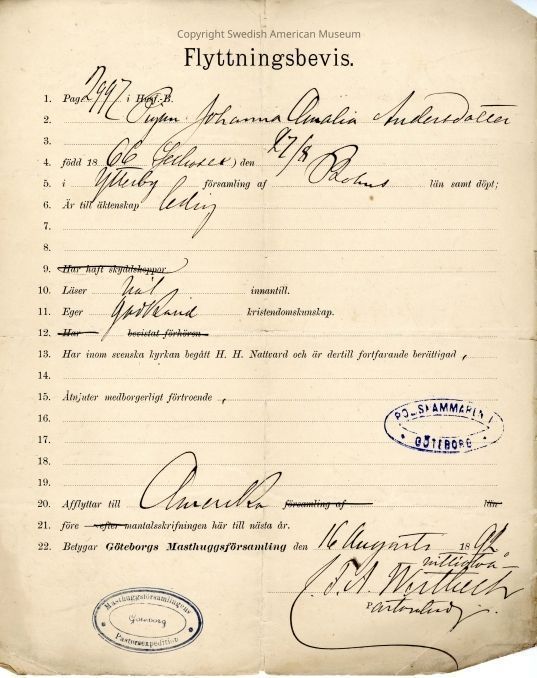 Copyright Swedish American Museum
Flyttningsbevis.
1. Page 997 i Husf.-B.
2. Pigan Johanna Amalia Andersdotter
3.
4. född 18 66 (sextiosex) den 27/8
5. i Ytterby församling af Bohus län samt döpt;
6. Är till äktenskap ledig
7.
8.
9. Har haft skyddskoppor
10. Läser väl innantill.
11. Eger godkänd kristendomskunskap.
12. Har bevistat förhören
13. Har inom svenska kyrkan begått H. H. Nattvard och är dertill fortfarande berättigad,
14.
15. Åtnjuter medborgerligt förtroende,
16.
17.
POLISKAMMAREN I
GÖTEBORG
18.
19.
20. Afflyttar till Amerika församling af län
21. före efter mantalsskrifningen här till nästa år.
22. Betygar Göteborgs Masthuggsförsamling den 16 Augusti 1892
nittiotvå
Masthuggsförsamlingens
Göteborg
Pastorsexpedition